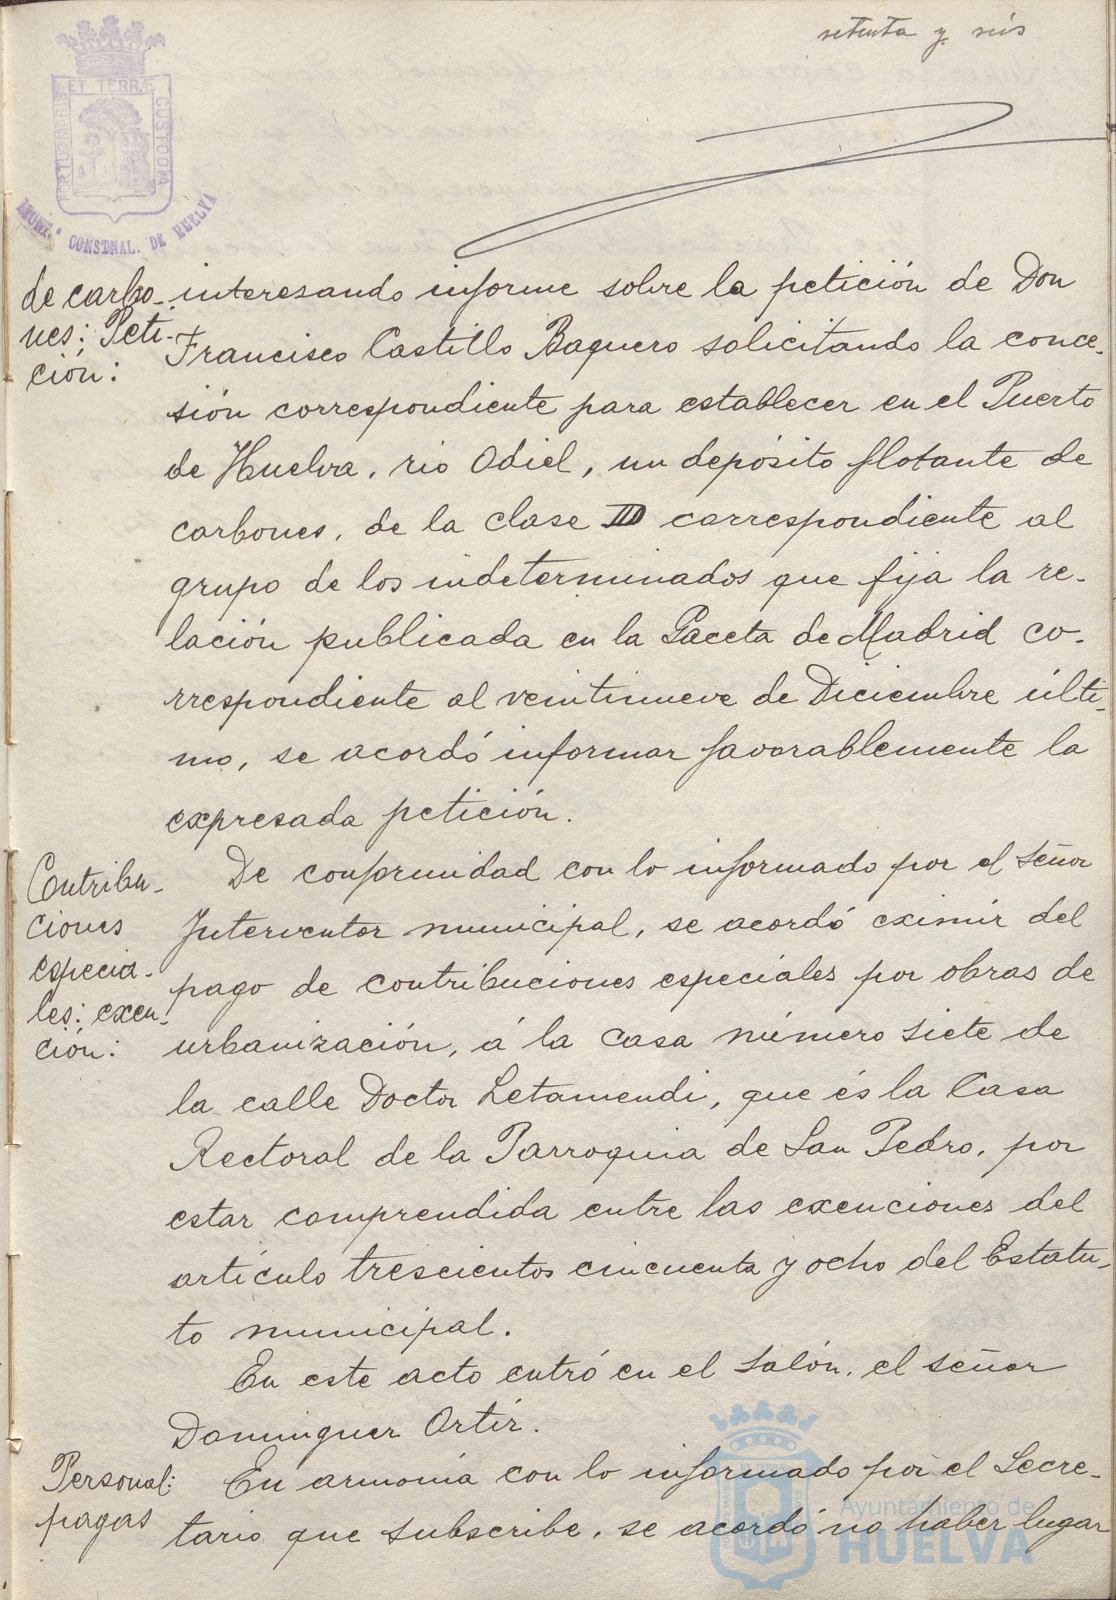 setenta y seis
PORTUS MARIS
ET TERRÆ
CUSTODIA
AYUNT.º CONSTNAL. DE HUELVA
de carbo-
nes: Peti-
ción:
interesando informe sobre la petición de Don
Francisco Castillo Baquero solicitando la conce-
sión correspondiente para establecer en el Puerto
de Huelva, rio Odiel, un depósito flotante de
carbones, de la clase III correspondiente al
grupo de los indeterminados que fija la re-
lación publicada en la Gaceta de Madrid co-
rrespondiente al veintinueve de Diciembre últi-
mo, se acordó informar favorablemente la
expresada petición.
Contribu-
ciones
especia-
les: exen-
ción:
De conformidad con lo informado por el señor
Interventor municipal, se acordó eximir del
pago de contribuciones especiales por obras de
urbanización, á la casa número siete de
la calle Doctor Letamendi, que és la Casa
Rectoral de la Parroquia de San Pedro, por
estar comprendida entre las exenciones del
artículo trescientos cincuenta y ocho del Estatu-
to municipal.
En este acto entró en el salón, el señor
Dominguez Ortíz.
Personal:
pagas
En armonía con lo informado por el Secre-
tario que subscribe, se acordó no haber lugar
Ayuntamiento de
HUELVA